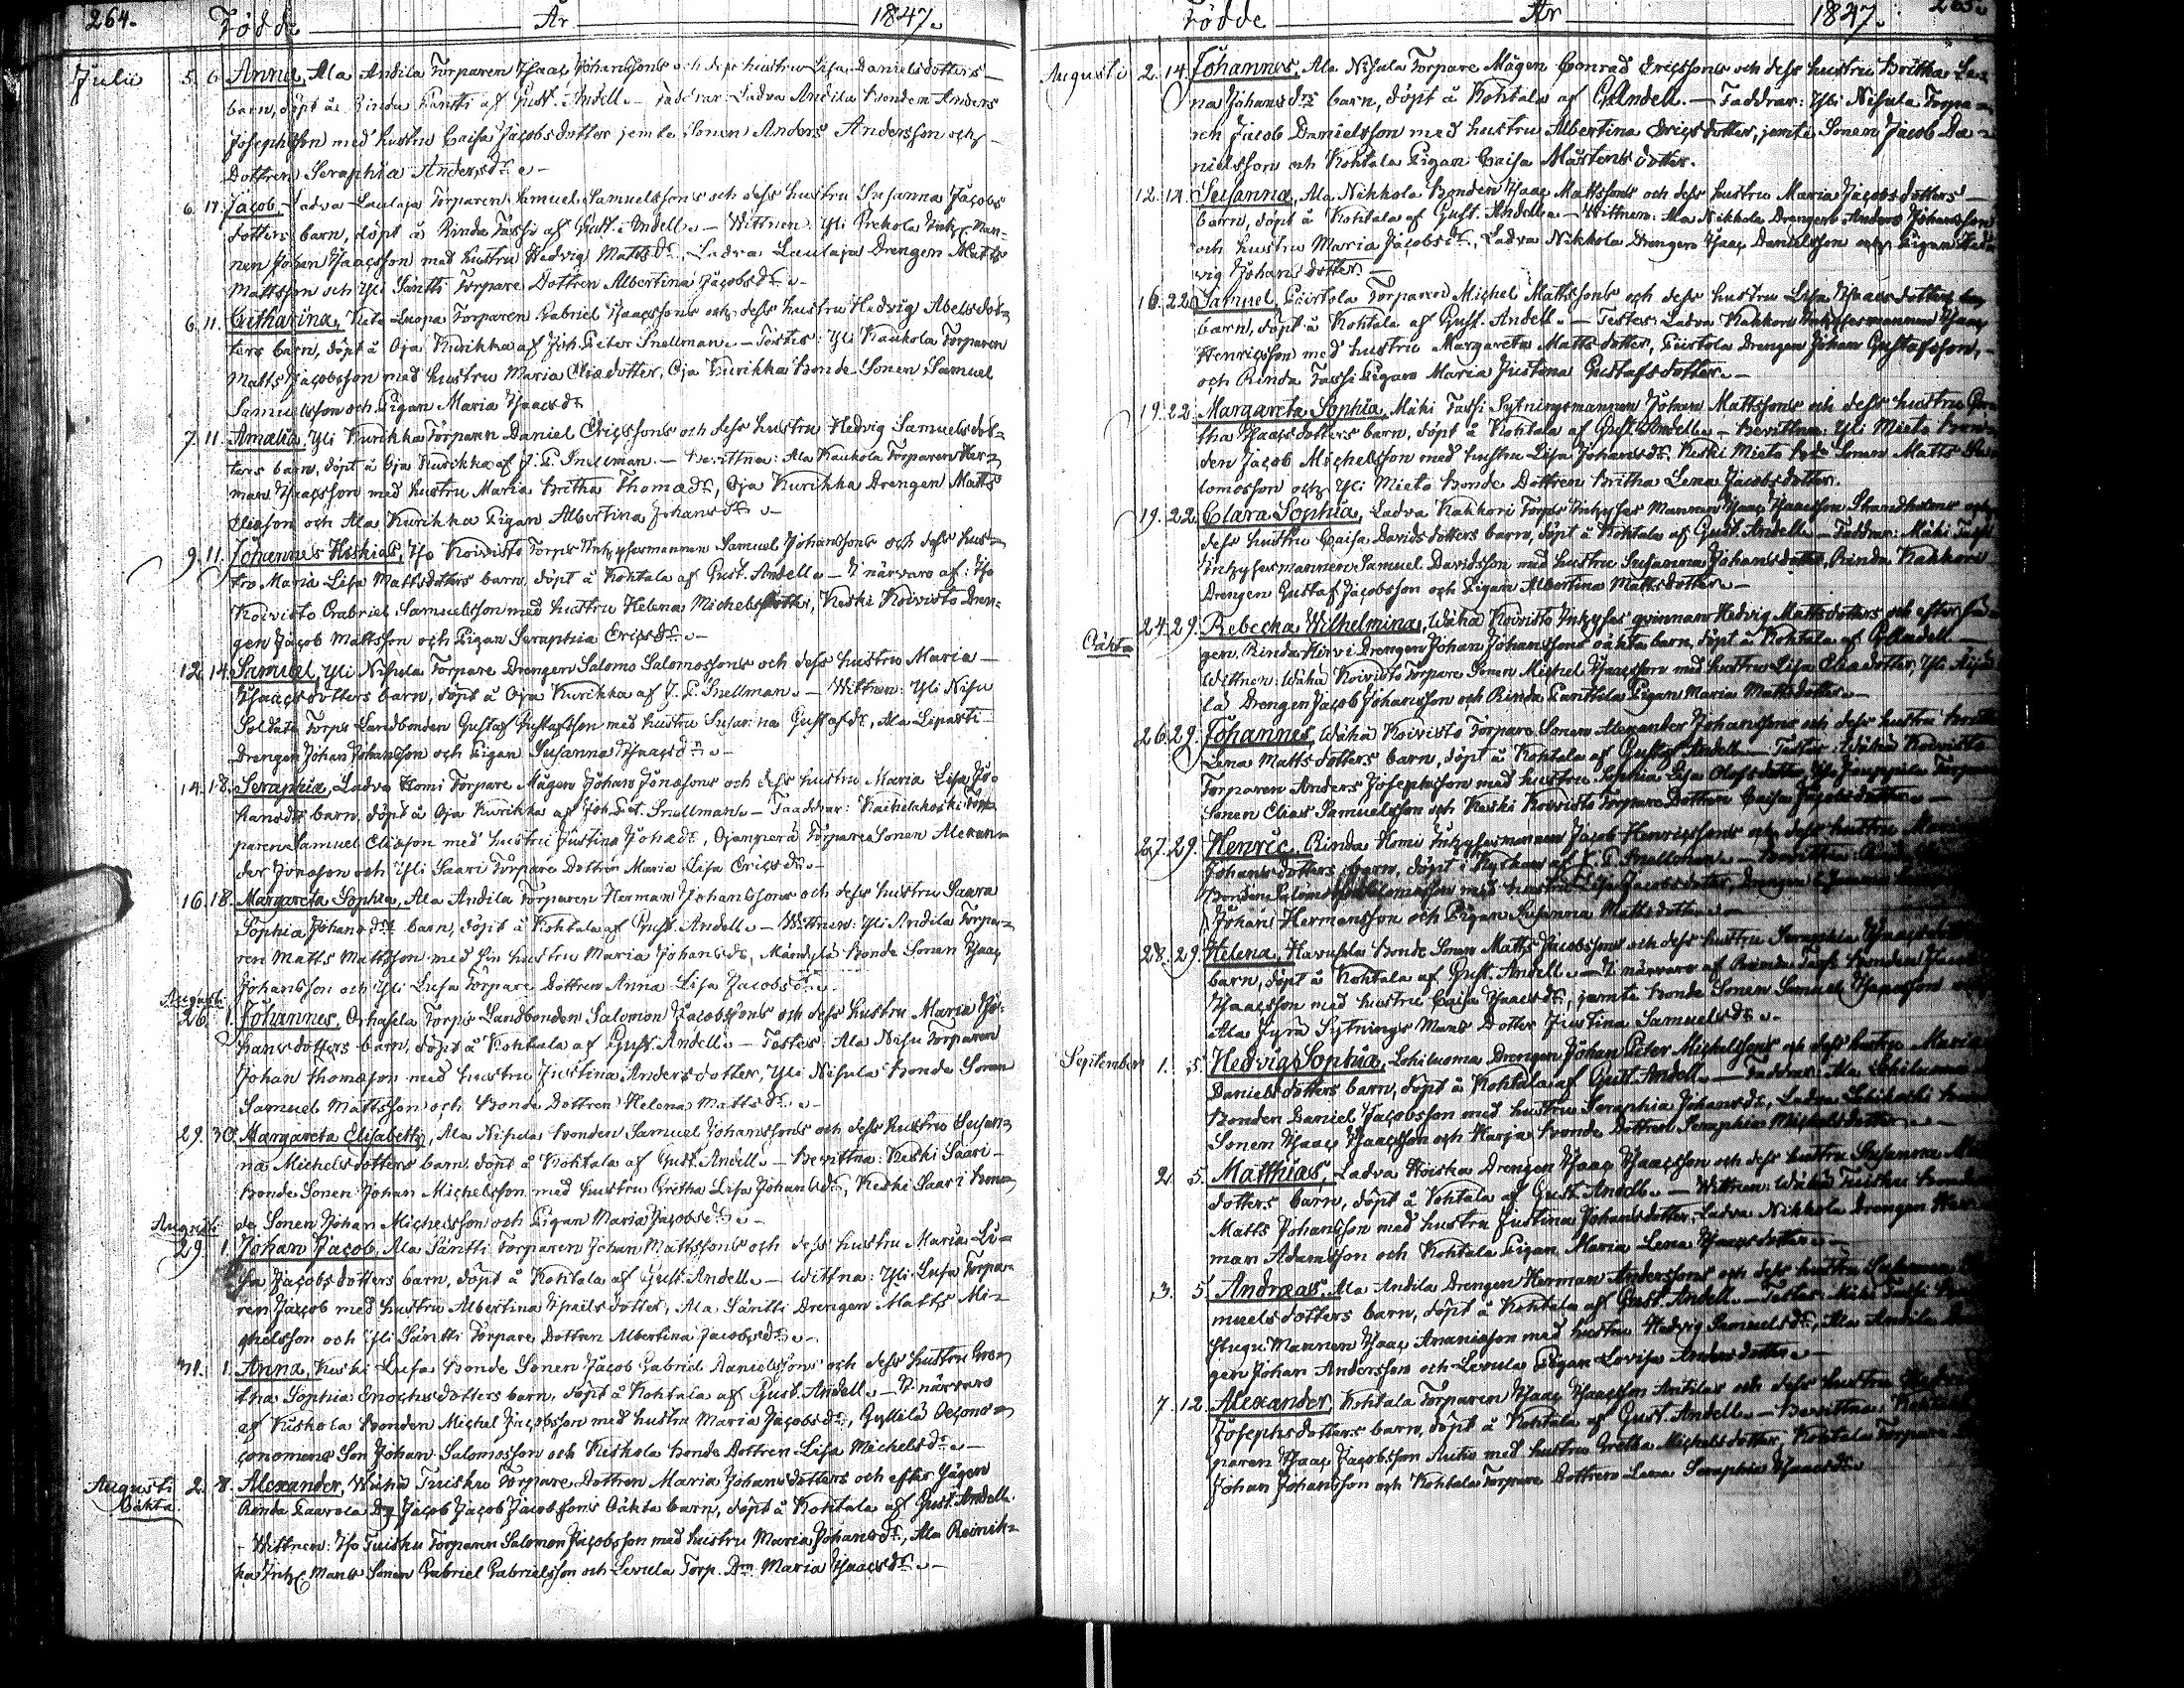 264. Födde År 1847.
Julii 5. 6. Anna, Ala Andila Torparen Isaac Johanssons och dess hustru Lisa Danielsdotters
barn, döpt å Rinda Pantti af Gust. Andell. Faddrar: Ladva Andila bonden Anders
Josephsson med hustru Caisa Jacobsdotter jemte Sonen Anders Andersson och
Dottren Seraphia Andersdr.
6. 11. Jacob, Ladva Laulaja Torparen Samuel Samuelssons och dess hustru Susanna Jacobs
dotters barn, döpt å Rinda Tassi af Gust. Andell. Wittnen: Yli Prekola Inh. Man-
nen Johan Isaacsson med hustru Hedvig Mattsdr., Ladva Laulaja Drengen Matts
Mattsson och Yli Säntti Torpare Dottren Albertina Jacobsdr.
6. 11. Catharina, Luopa Torparen Gabriel Isaacssons och dess hustru Hedvig Abelsdot-
ters barn, döpt å Oja Kurikka af Joh. Peter Snellman. Testes: Yli Kaukola Torparen
Matts Jacobsson med hustru Maria Eliædotter, Oja Kurikka bonde Sonen Samuel
Samuelsson och Pigan Maria Isaacsdr.
7. 11. Amalia, Yli Kurikka Torparen Daniel Ericssons och dess hustru Hedvig Samuelsdot-
ters barn, döpt å Oja Kurikka af J. P. Snellman. bevittna: Ala Kaukola Torparen Her-
man Isaacsson med hustru Maria Britha Thomædr., Oja Kurikka Drengen Matts
Eliason och Ala Kurikka Pigan Albertina Johansdr.
9. 11. Johannes Heskias, Iso Koivisto Torps Inhysesmannen Samuel Johanssons och dess hus-
tru Maria Lisa Mattsdotters barn, döpt å Kohtala af Gust. Andell. I närvaro af: Iso
Koivisto Gabriel Samuelsson med hustru Helena Michelsdotter, Keski Koivisto Dren-
gen Jacob Mattsson och Pigan Seraphia Ericsdr.
12. 14. Samuel, Yli Nisula Torpare Drengen Salomo Salomossons och dess hustru Maria
Isaacsdotters barn, döpt å Oja Kurikka af J. P. Snellman. Wittnen: Yli Nisu
Soldats Torps Landbonden Gustaf Gustafsson med hustru Susanna Gustafsdr., Ala Liparti
Drengen Johan Johansson och Pigan Susanna Isaacsdr.
14. 18. Seraphia, Ladva Homi Torpare Mågen Johan Jonæsons och dess hustru Maria Lisa Jo-
hansdrs barn, döpt å Oja Kurikka af Joh. Pet. Snellman. Faddrar: Kaihelakoski Tor-
paren Samuel Eliæson med hustru Justina Johædr., Ojanperä Torpare Sonen Alexan-
der Jonæson och Yli Saari Torpare Dottren Maria Lisa Ericsdr.
16. 18. Margareta Sophia, Ala Andila Torparen Herman Johanssons och dess hustru Saara
Sophia Johansdrs barn, döpt å Kohtala af Gust. Andell. Wittnen: Yli Andila Torpa-
ren Matts Mattsson med sin hustru Maria Johansdr., Mändylä bonde Sonen Isaac
Johansson och Yli Lusa Torpare Dottren Anna Lisa Jacobsdr.
Augusti
26. 1. Johannes, Torps Landbonden Salomon Jacobssons och dess hustru Maria Jo-
hansdotters barn, döpt å Kohtala af Gust. Andell. Testes: Ala Nisu Torparen
Johan Thomæson med hustru Justina Andersdotter, Yli Nisula bonde Sonen
Samuel Mattsson och bonde Dottren Helena Mattsdr.
29. 30. Margareta Elisabeth, Ala Nisula bonden Samuel Johanssons och dess hustru Susan-
na Michelsdotters barn, döpt å Kohtala af Gust. Andell. bevittna: Keski Saari
bonde Sonen Johan Michelsson med hustru Gretha Lisa Johansdr., Keski Saari bon-
de Sonen Johan Michelsson och Pigan Maria Jacobsdr.
Augusti
29. 1. Johan Jacob, Ala Säntti Torparen Johan Mattssons och dess hustru Maria Li-
sa Jacobsdotters barn, döpt å Kohtala af Gust. Andell. wittna: Yli Lusa Torpa-
ren Jacob med hustru Albertina Israelsdotter, Ala Säntti Drengen Matts Mi-
chelsson och Yli Säntti Torpare Dottren Albertina Jacobsdr.
31. 1. Anna, Keski Lusa bonde Sonen Jacob Gabriel Danielssons och dess hustru Gre-
tha Sophia Enochsdotters barn, döpt å Kohtala af Gust. Andell. I närvaro
af Kiskola bonden Michel Jacobsson med hustru Maria Jacobsdr., Gyllilä Oecono-
conomens Son Johan Salomosson och Kiskola bonde Dottren Lisa Michelsdr.
Augusti 2. 8. Alexander, Wähä Tuisku Torpare Dottren Maria Johansdotters och efter sägen
Oäkta Rinda Paavola Dr. Jacob Jacob Jacobssons Oäkta barn, döpt å Kohtala af Gust. Andell.
Wittnen: Iso Tuisku Torparen Salomon Jacobsson med hustru Maria Johansdr., Ala Reinik-
ka Inh. Mans Sonen Gabriel Gabrielsson och Levula Torp. Drn Maria Isaacsdr.
Födde År 1847. 265.
Augusti 2. 14. Johannes, Ala Nisula Torpare Mågen Conrad Ericssons och dess hustru Britha Le-
na Johansdrs barn, döpt å Kohtala af G. Andell. Faddrar: Yli Nisula Torpa-
ren Jacob Danielsson med hustru Albertina Ericsdotter, jemte Sonen Jacob Da-
nielsson och Kohtala Pigan Caisa Mårtensdotter.
12. 14. Susanna, Ala Nikkola bonden Isaac Mattssons och dess hustru Maria Jacobsdotters
barn, döpt å Kohtala af Gust. Andell. Wittnen: Ala Nikkola Drengen Anders Johansson
och hustru Maria Jacobsdr., Ladva Nikkola Drengen Isaac Danielsson och Pigan Hed-
vig Johansdotter.
16. 22. Samuel, Piirtola Torparen Michel Mattssons och dess hustru Lisa Isaacsdotters
barn, döpt å Kohtala af Gust. Andell. Testes: Ladva Kakkori Inhysesmannen Isaac
Henricsson med hustru Margareta Mattsdotter, Piirtola Drengen Johan Gustafsson,
och Rinda Tassi Pigan Maria Justina Gustafsdotter.
19. 22. Margareta Sophia, Mäki Tassi Sytningsmannen Johan Mattssons och dess hustru Gre-
tha Isaacsdotters barn, döpt å Kohtala af Gust. Andell. Bevittna: Yli Mieto bon-
den Jacob Michelsson med hustru Lisa Johansdr. Keski Mieto Sonen Matts
lomosson och Yli Mieto bonde Dottren Britha Lena Jacobsdotter.
19. 22. Clara Sophia, Ladva Kakkori Torps Inhyses Mannen Isaac Isaacsson Strandholms och
dess hustru Caisa Davidsdotters barn, döpt å Kohtala af Gust. Andell. Faddrar: Mäki Tassi
Inhysesmannen Samuel Davidsson med hustru Susanna Johansdotter, Rinda Kakkori
Drengen Gustaf Jacobsson och Pigan Albertina Mattsdotter.
24. 29. Rebecka Wilhelmina, Wähä Koivisto Inhyses qvinnan Hedvig Mattsdotters och efter sä-
Oäkta gen, Rinda Hirvi Drengen Johan Johanssons oäkta barn, döpt å Kohtala af G. Andell.
Wittnen: Wähä Koivisto Torpare Sonen Michel Isaacsson med hustru Lisa Eliædotter, Yli
la Drengen Jacob Johansson och Rinda Panttila Pigan Maria Mattsdotter.
26. 29. Johannes, Wähä Koivisto Torpare Sonen Alexander Johanssons och dess hustru
Lena Mattsdotters barn, döpt å Kohtala af Gustaf Andell. Testes: Wähä Koivisto
Torparen Anders Josephsson med hustru Sophia Lisa Olofsdotter, Yli Jouppila
Sonen Elias Samuelsson och Keski Koivisto Torpare Dottren Caisa Jacobsdotter.
27. 29. Henric, Rinda Homi Inhysesmannen Jacob Henricssons och dess hustru Maria
Johansdotters barn, döpt i Kyrkan af J. P. Snellman. Bevittna:
bonden Salomo Salomosson med hustru Lisa Jacobsdotter, Drengen
Johan Hermansson och Pigan Susanna Mattsdotter.
28. 29. Helena, Harjula bonde Sonen Matts Jacobssons och dess hustru Seraphia Isaacsdotters
barn, döpt å Kohtala af Gust. Andell. I närvaro af Rinda Tassi bonden
Isaacsson med hustru Caisa Isaacsdr., jemte bonde Sonen Samuel Isaacsson och
Ala Jyrä Sytnings Mans Dotter Justina Samuelsdr.
September 1. 5. Hedvig Sophia, Lohiluoma Drengen Johan Peter Michelssons och dess hustru Maria
Danielsdotters barn, döpt å Kohtala af Gust. Andell. Faddrar: Ala Lohiluoma
bonden Daniel Jacobsson med hustru Seraphia Johansdr., Ladva
Sonen Isaac Isaacsson och Harja bonde Dottren Seraphia Michelsdotter.
2. 5. Matthias, Ladva Hoiska Drengen Isaac Isaacsson och dess hustru Susanna
dotters barn, döpt å Kohtala af Gust. Andell. Wittnen: Wähä Tuisku
Matts Johansson med hustru Justina Johansdotter, Ladva Nikkola Drengen Her-
man Adamsson och Kohtala Pigan Maria Lena Isaacsdotter.
3. 5. Andreas, Ala Andila Drengen Herman Anderssons och dess hustru Susanna
muelsdotters barn, döpt å Kohtala af Gust. Andell. Testes: Mäki Tassi
stugu Mannen Isaac Ananiæson med hustru Hedvig Samuelsdr., Ala Andila
gen Johan Andersson och Levula Pigan Lovisa Andersdotter.
7. 12. Alexander, Kohtala Torparen Isaac Isaacsson Antilas och dess hustru
Josephsdotters barn, döpt å Kohtala af Gust. Andell. Bevittna: Kohtala
paren Isaac Jacobsson Autio med hustru Gretha Michelsdotter, Kohtala Torpare
Johan Johansson och Kohtala Torpare Dottren Lena Seraphia Isaacsdr.